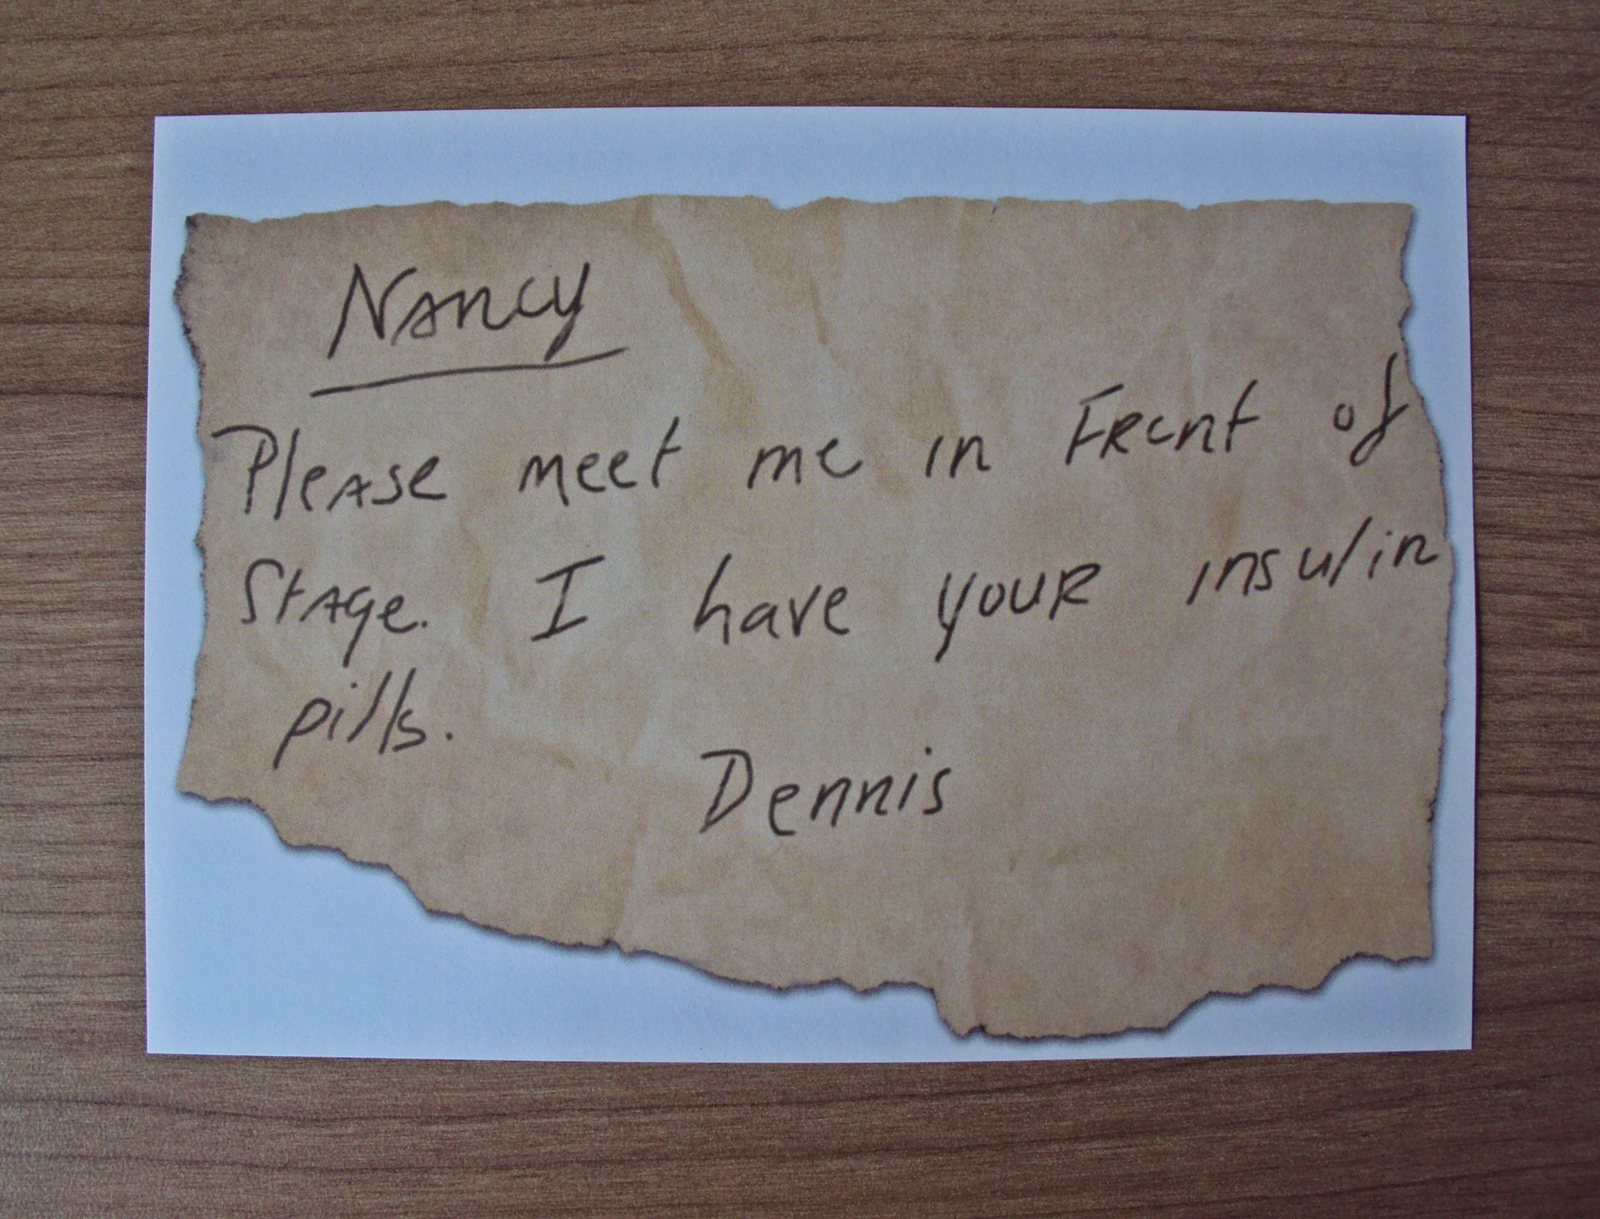 Nancy
Please meet me in Front of
Stage. I have your insulin
pills.
Dennis